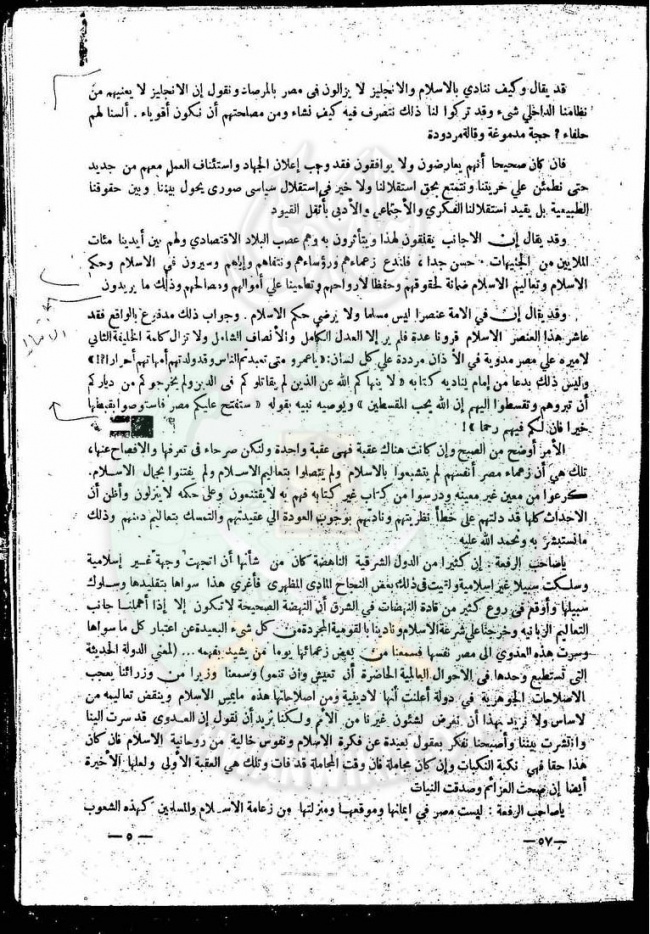 قد يقال وكيف ننادي بالاسلام والانجليز لا يزالون فى مصر بالمرصاد ونقول إن الانجليز لا يعنيهم من
نظامنا الداخلي شىء وقد تركوا لنا ذلك نتصرف فيه كيف نشاء ومن مصلحتهم أن نكون أقوياء . ألسنا لهم
حلفاء ؟ حجة مدموغة وقالة مردودة
فان كان صحيحا أنهم يعارضون ولا يوافقون فقد وجب إعلان الجهاد واستئناف العمل معهم من جديد
حتى نطمئن علي حريتنا ونتمتع بحق استقلالنا ولا خير فى استقلال سياسى صورى يحول بيننا وبين حقوقنا
الطبيعية بل يقيد استقلالنا الفكري والأجتماعي والأدبى بأثقل القيود
وقد يقال إن الاجانب يقلقون لهذا ويتأثرون به وهم عصب البلاد الاقتصادي ولهم بين أيدينا مئات
الملايين من الجنيهات . حسن جدا ، فلندع زعماءهم ورؤساءهم ونتفاهم وإياهم وسيرون في الاسلام وحكم
الاسلام وتعاليم الاسلام ضمانة لحقوقهم وحفظا لارواحهم وتطمينا علي أموالهم ومصالحهم وذلك ما يريدون
وقد يقال إن فى الامة عنصرا ليس مسلما ولا يرضي حكم الاسلام . وجواب ذلك مدفوع بالواقع فقد
عاشر هذا العنصر الاسلام قرونا عدة فلم ير إلا العدل الكامل والأنصاف الشامل ولا تزال كامة الخليفة الثاني
لاميره علي مصر مدوية في الآذان مرددة علي كل لسان : « ياعمرو متى تعبدتم الناس وقد ولدتهم أمهاتهم أحرارا ؟! »
وليس ذلك بدعا من إمام يناديه كتابه « لا ينهاكم الله عن الذين لم يقاتلوكم فى الدين ولم يخرجوكم من دياركم
أن تبروهم وتقسطوا اليهم إن الله يحب المقسطين » ويوصيه نبيه بقوله « ستفتح عليكم مصر فاستوصوا بقبطها
خيرا فان لكم فيهم رحما » !
الأمر أوضح من الصبح وإن كانت هناك عقبة فهى عقبة واحدة ولنكن صرحاء فى تعرفها والافصاح عنها ،
تلك هي أن زعماء مصر أنفسهم لم يتشبعوا بالاسلام ولم يتصلوا بتعاليم الاسلام ولم يفتنوا بجمال الاسلام .
كرعوا من معين غير معينه ودرسوا من كتاب غير كتابه فهم به لا يقتنعون وعلى حكمه لا ينزلون وأظن أن
الاحداث كلها قد دلتهم على خطأ نظريتهم ونادتهم بوجوب العودة الي عقيدتهم والتمسك بتعاليم دينهم وذلك
ما نستبشر به ونحمد الله عليه
ياصاحب الرفعة : إن كثيرا من الدول الشرقية الناهضة كان من شأنها أن اتجهت وجهة غير إسلامية
وسلكت سبيلا غير إسلامية ولقيت فى ذلك بعض النجاح المادى المظهرى فأغري هذا سواها بتقليدها وسلوك
سبيلها وأوقع في روع كثير من قادة النهضات في الشرق أن النهضة الصحيحة لا تكون إلا إذا أهملنا جانب
التعاليم الربانيه وخرجنا علي شرعة الاسلام ونادينا بالقومية المجردة من كل شىء البعيدة عن اعتبار كل ما سواها
وسرت هذه العدوي الى مصر نفسها فسمعنا من بعض زعمائها يوما من يشيد بفهمه ... ( لمعني الدولة الحديثة
التى تستطيع وحدها فى الاحوال العالمية الحاضرة أن تعيش وأن تنمو ) وسمعنا وزيرا من وزرائنا يعجب
الاصلاحات الجوهرية في دولة أعلنت أنها لادينية ومن اصلاحاتها هذه مايمس الاسلام وينقض تعاليمه من
لاساس ولا نريد بهذا أن نعرض لشئون غيرنا من الأمم ولكنا نريد أن نقول إن العدوى قد سرت الينا
وانتشرت بيننا وأصبحنا نفكر بعقول بعيدة عن فكرة الاسلام ونفوس خالية من روحانية الاسلام فان كان
هذا حقا فهي نكبة النكبات وإن كان مجاملة فان وقت المجاملة قد فات وتلك هي العقبة الأولى ولعلها الأخيرة
أيضا إن صحت العزائم وصدقت النيات
ياصاحب الرفعة : ليست مصر في ايمانها وموقعها ومنزلتها من زعامة الاسلام والمسلمين كهذه الشعوب
— ٥٧ —
— ٥